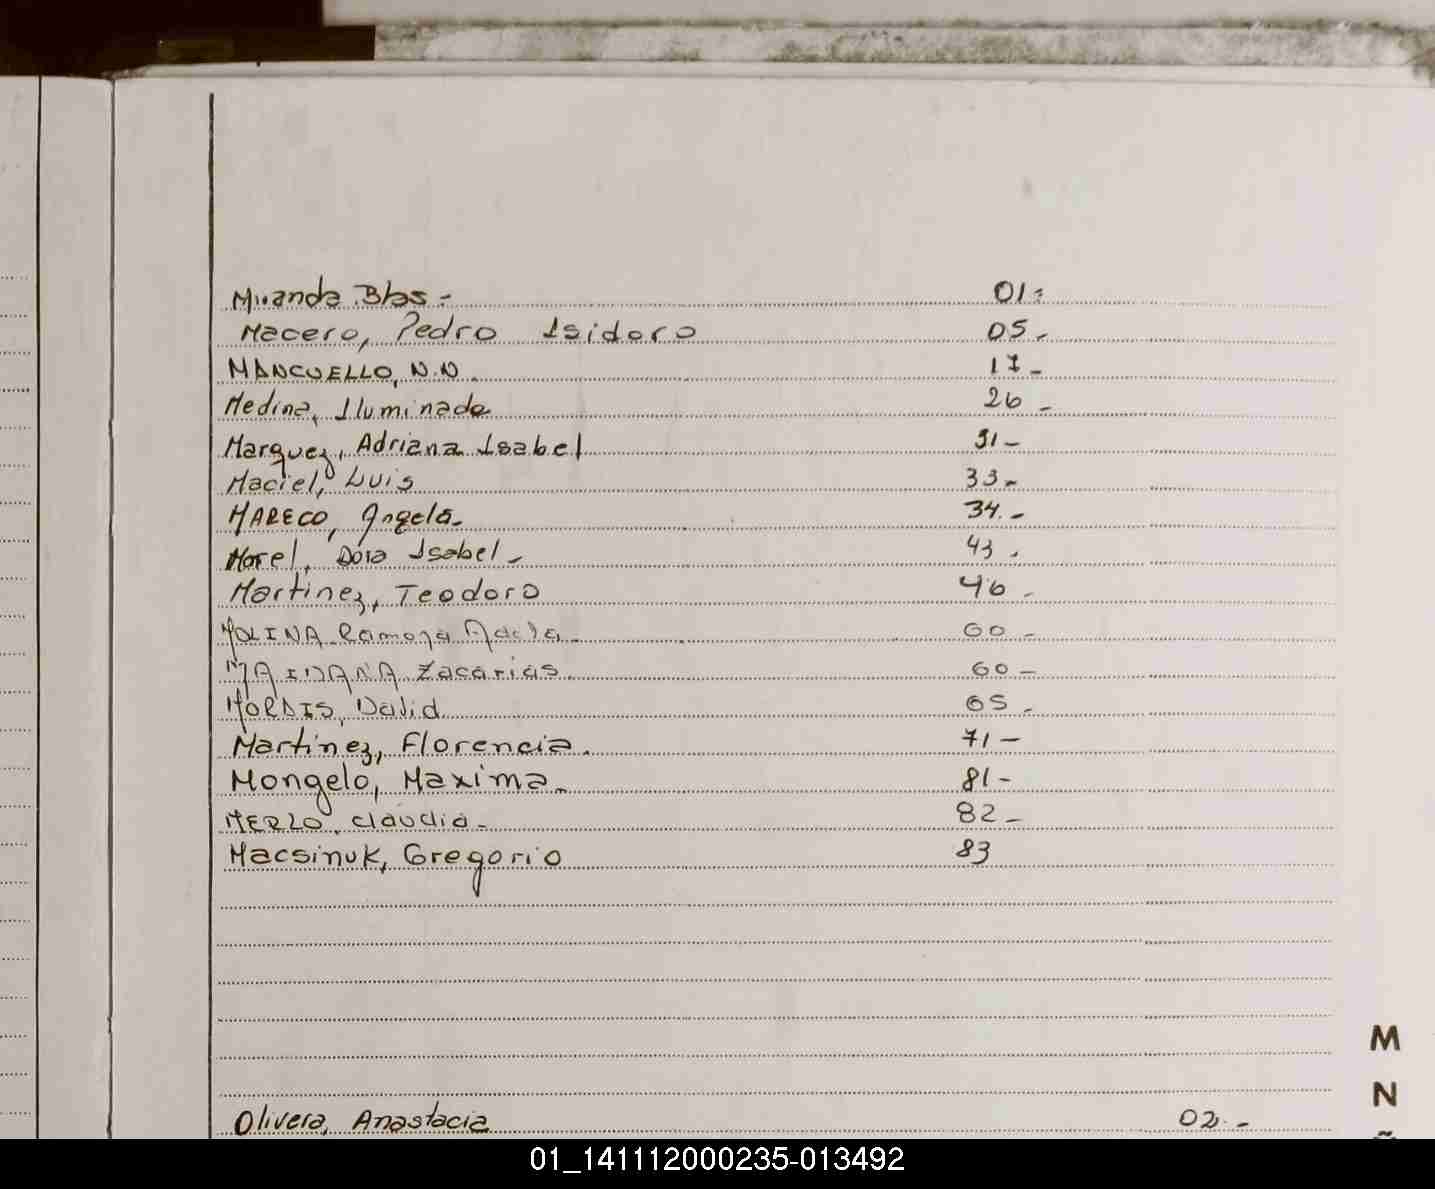 Miranda Blas - 01-
Macero, Pedro Isidoro 05-
MANCUELLO, N.N. 17-
Medina, Iluminada 26-
Marquez, Adriana Isabel 31-
Maciel, Luis 33-
MARECO, Angela- 34.-
Morel, Dora Isabel- 43-
Martinez, Teodoro 46-
MOLINA Ramona Adela- 60-
MAIDANA Zacarias. 60-
MORDIS, David 65-
Martinez, Florencia. 71-
Mongelo, Maxima- 81-
MERLO, Claudia- 82-
Macsinuk, Gregorio 83
M
N
Olivera, Anastacia 02.-
01_141112000235-013492